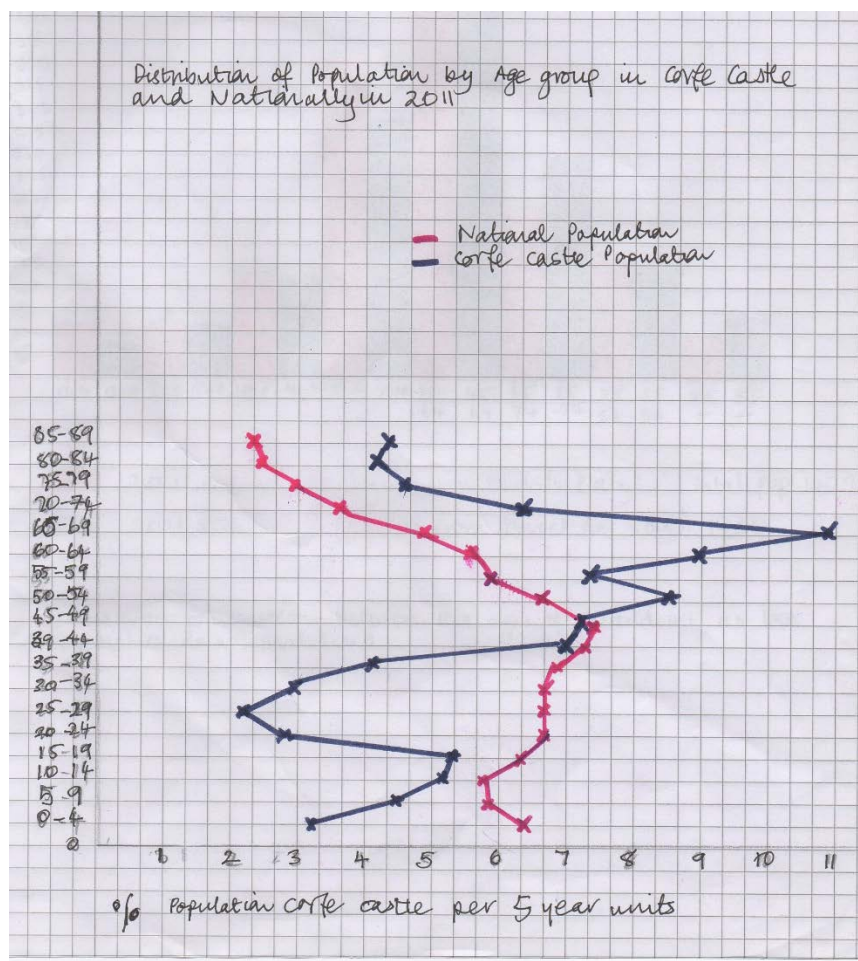 Distribution of Population by Age group in Corfe Castle
and Nationally in 2011
National Population
Corfe Castle Population
85-89
80-84
75-79
70-74
65-69
60-64
55-59
50-54
45-49
39-44
35-39
30-34
25-29
20-24
15-19
10-14
5-9
0-4
0
1 2 3 4 5 6 7 8 9 10 11
% Population Corfe Castle per 5 year units